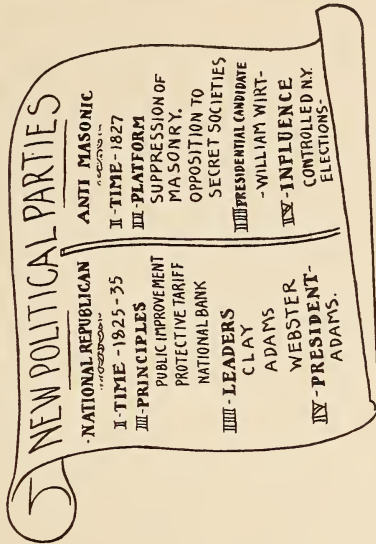 NEW POLITICAL PARTIES
·NATIONAL REPUBLICAN
I-TIME-1825-35
II-PRINCIPLES
PUBLIC IMPROVEMENT
PROTECTIVE TARIFF
NATIONAL BANK
III-LEADERS
CLAY
ADAMS
WEBSTER
IV-PRESIDENT-
ADAMS.
ANTI MASONIC
I-TIME-1827
II-PLATFORM
SUPPRESSION OF
MASONRY.
OPPOSITION TO
SECRET SOCIETIES
III PRESIDENTIAL CANDIDATE
-WILLIAM WIRT-
IV-INFLUENCE
CONTROLLED N.Y.
ELECTIONS-